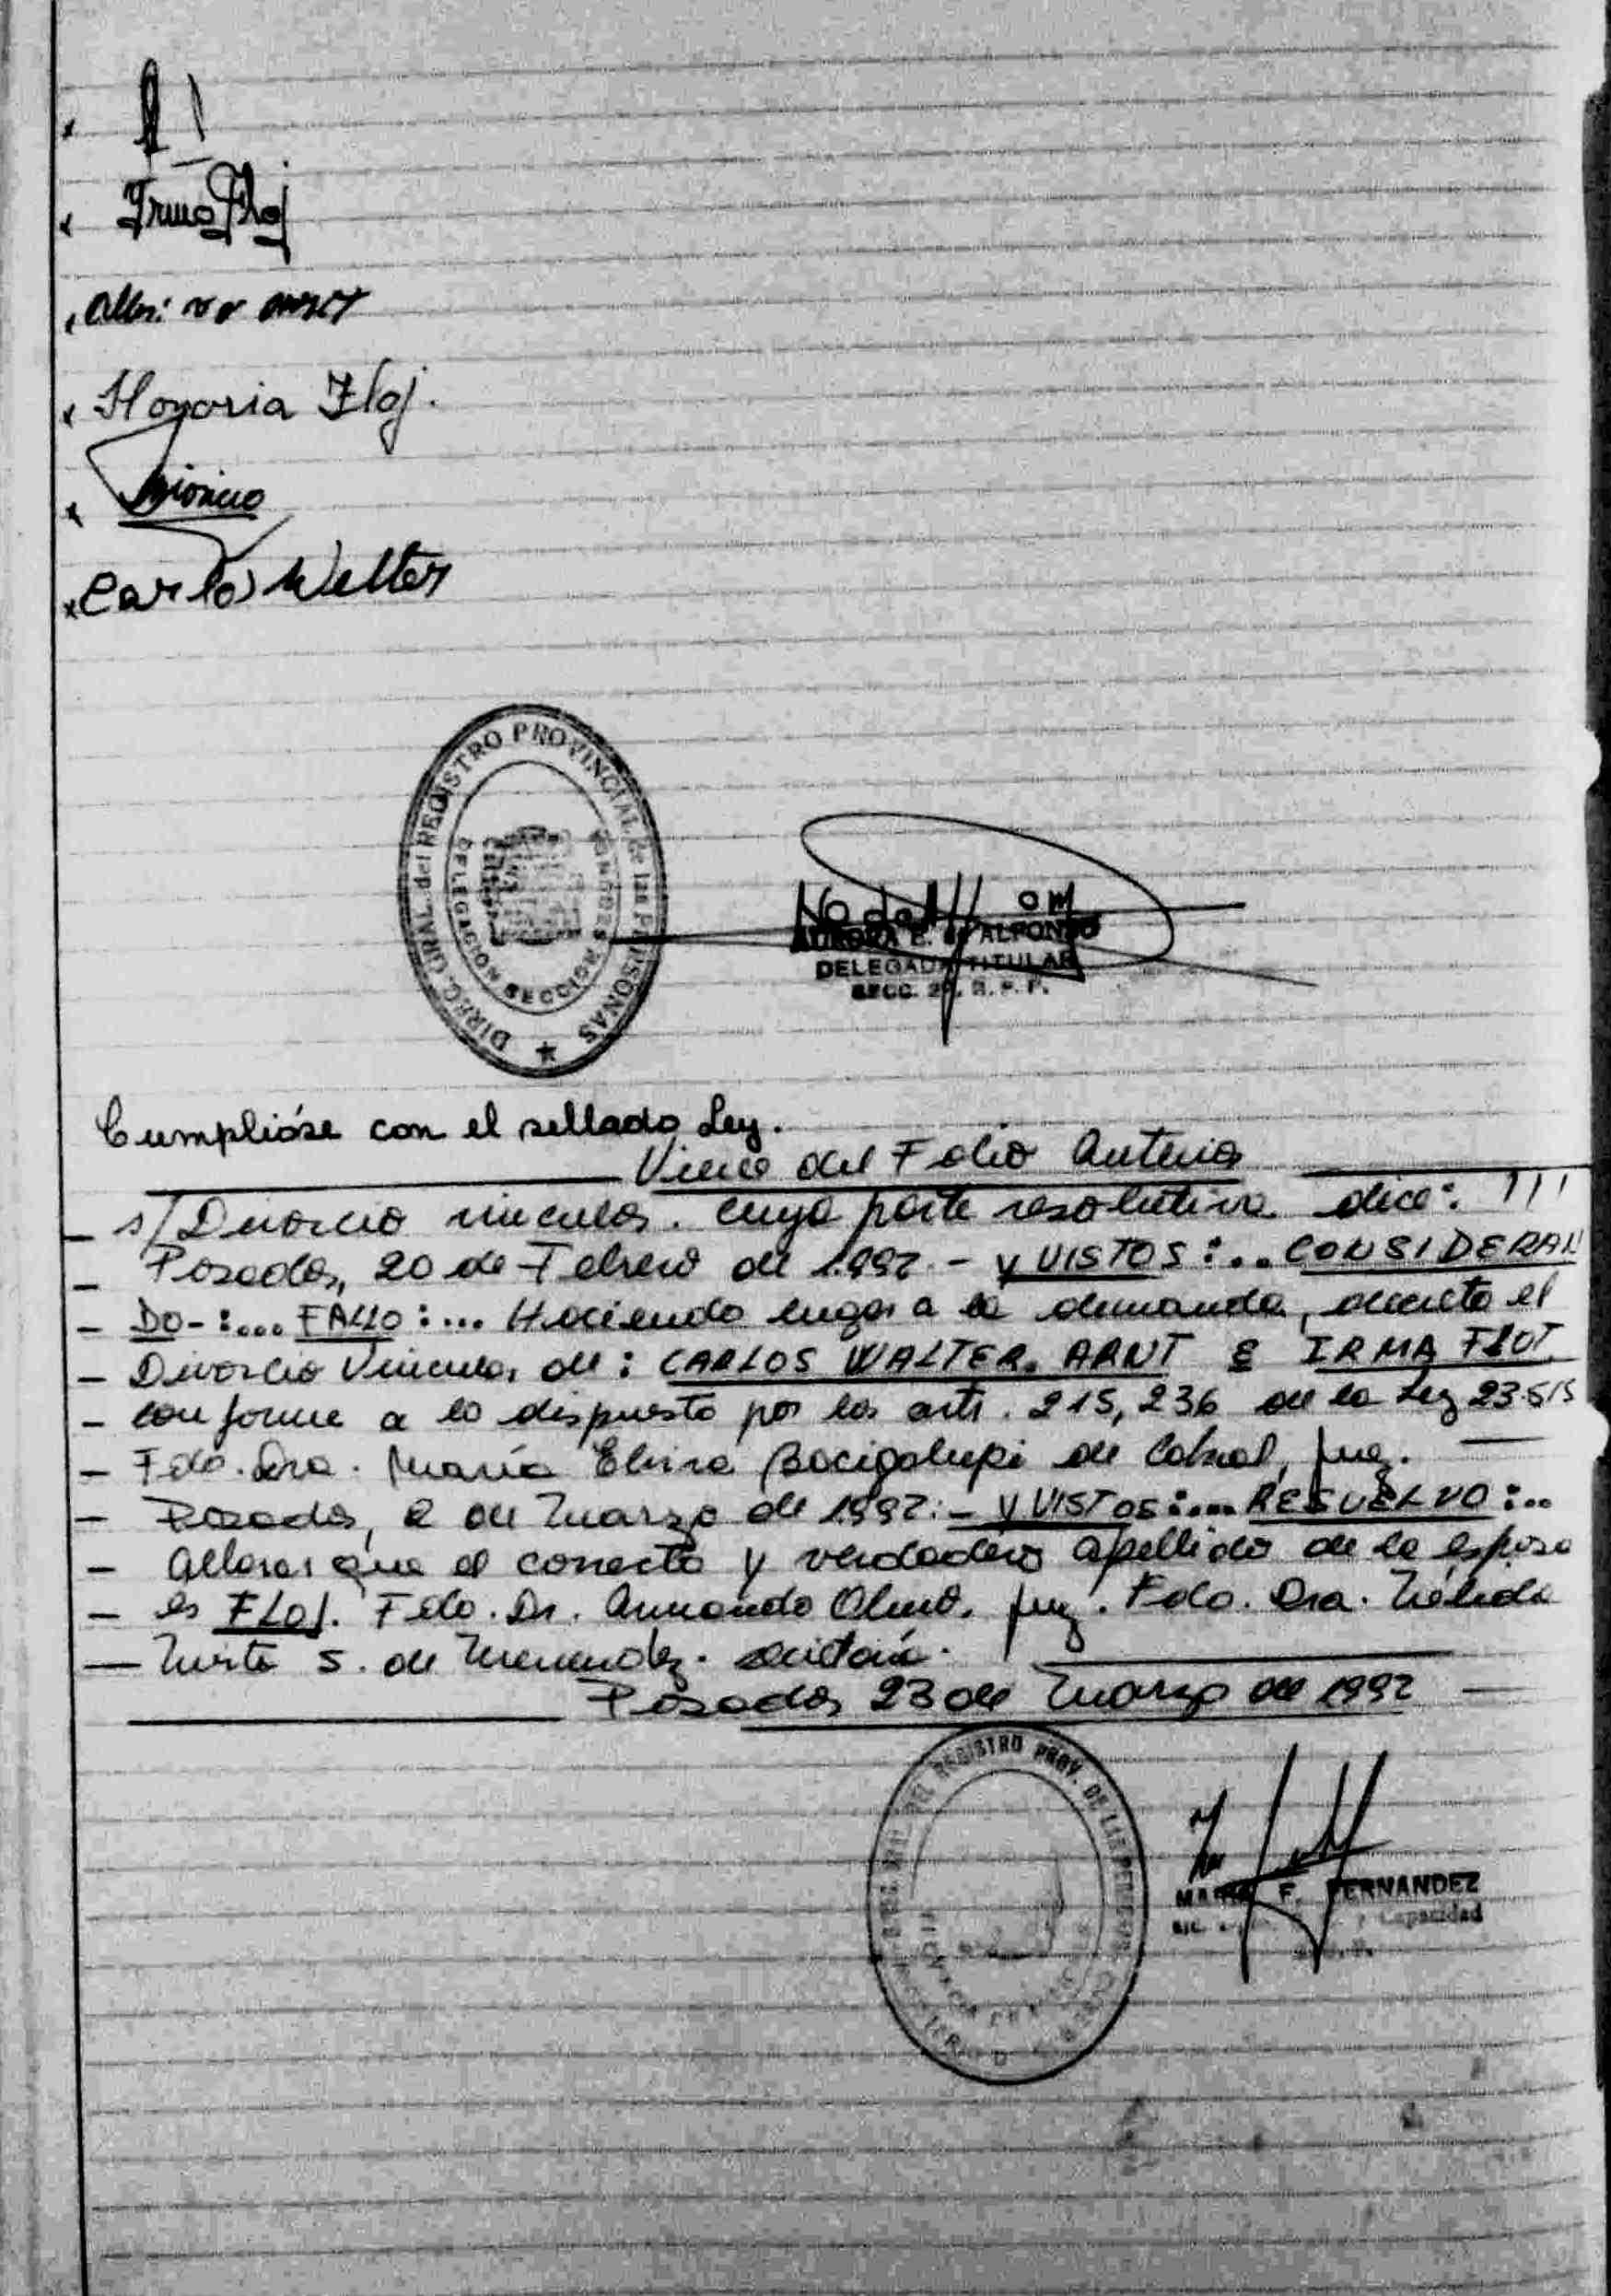 Irma Floj
Honoria Floj.
Dionicio
Carlos Walter
DIREC. GRAL. del REGISTRO PROVINCIAL de las PERSONAS
DELEGACION SECCION
AURORA E. de ALFONSO
DELEGADA TITULAR
SECC. 2ª. R. P. P.
Cumplióse con el sellado Ley.
Viene del Folio Anterior
- s/ Divorcio vincular. Cuya parte resolutiva dice: ///
- Posadas, 20 de Febrero de 1.992.- y VISTOS:.. CONSIDERAN
- DO-:... FALLO:... Haciendo lugar a la demanda, decreto el
- Divorcio Vincular de: CARLOS WALTER ARNT E IRMA FLOT
- conforme a lo dispuesto por los arts. 215, 236 de la Ley 23.515
- Fdo. Dra. María Elvira Bacigalupi de Cabral, Juez.
- Posadas, 2 de Marzo de 1992:- y VISTOS:... RESUELVO:..
- Aclarar que el correcto y verdadero apellido de la esposa
- es FLOJ. Fdo. Dr. Armando Juez. Fdo. Dra. Nélida
- Mirta S. de Menendez. Secretaria.
Posadas 23 de Marzo de 1992
REGISTRO PROV. DE LAS PERSONAS
MARIA F. FERNANDEZ
y Capacidad